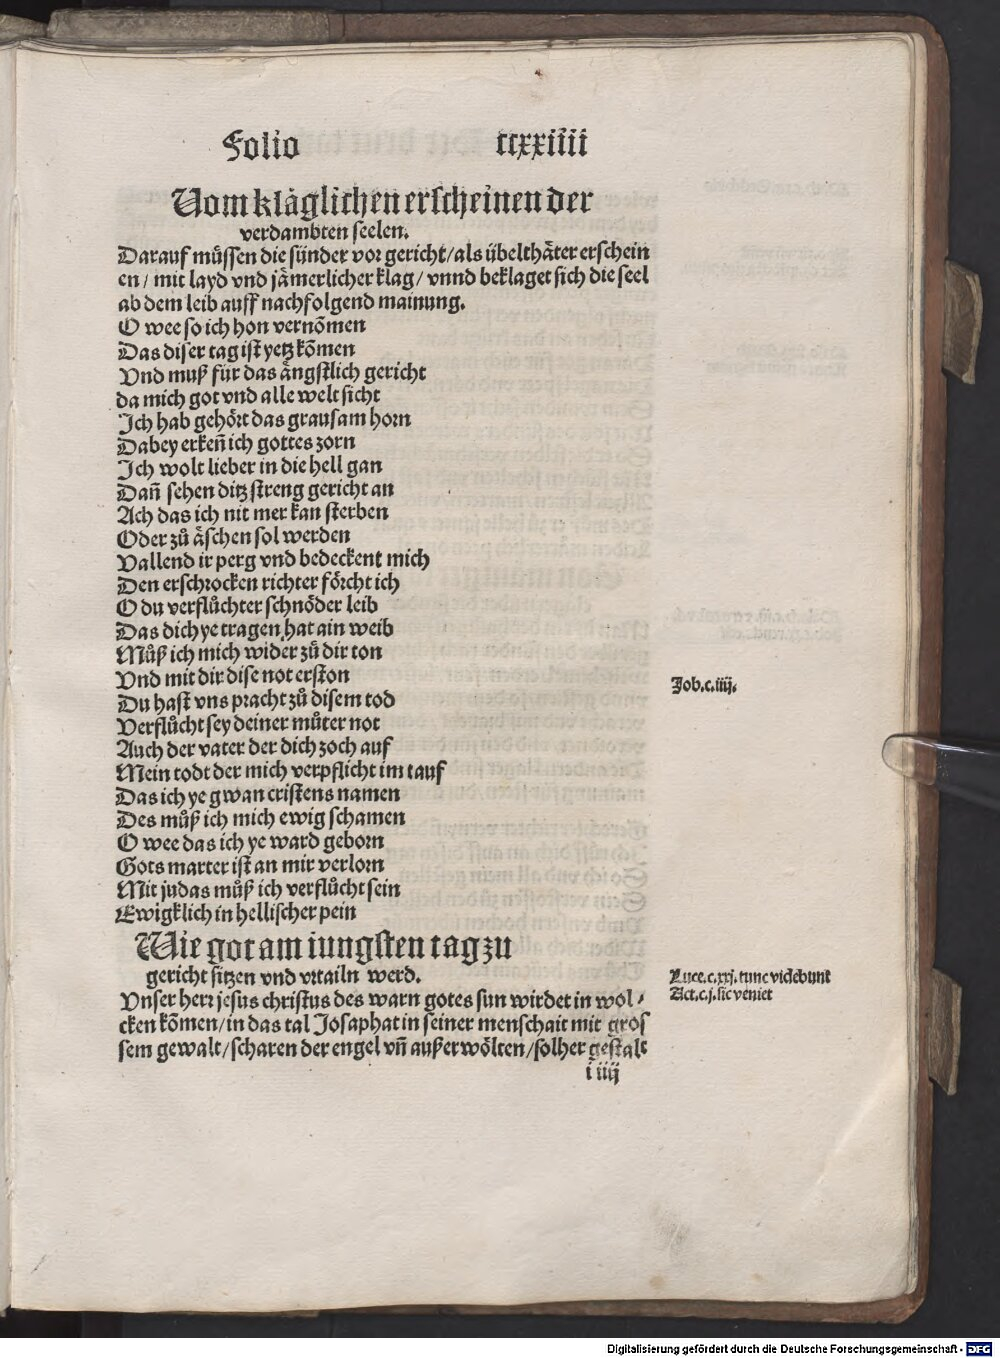 Folio ccxxiiii
Vom kläglichen erscheinen der
verdambten seelen.
Darauf müssen die sünder vor gericht/als übelthäter erschein
en/ mit layd vnd jämerlicher klag/ vnnd beklaget sich die seel
ab dem leib auff nachfolgend mainung.
O wee so ich hon vernōmen
Das diser tag ist yetz kōmen
Vnd muß für das ängstlich gericht
da mich got vnd alle welt sicht
Ich hab gehört das grausam horn
Dabey erkeñ ich gottes zorn
Ich wolt lieber in die hell gan
Dañ sehen ditz streng gericht an
Ach das ich nit mer kan sterben
Oder zů äschen sol werden
Vallend ir perg vnd bedeckent mich
Den erschrocken richter förcht ich
O du verflůchter schnöder leib
Das dich ye tragen hat ain weib
Můß ich mich wider zů dir ton
Vnd mit dir dise not erston
Job.c.iiij.
Du hast vns pracht zů disem tod
Verflůcht sey deiner můter not
Auch der vater der dich zoch auf
Mein todt der mich verpflicht im tauf
Das ich ye gwan cristens namen
Des můß ich mich ewig schamen
O wee das ich ye ward geborn
Gots marter ist an mir verlorn
Mit judas můß ich verflůcht sein
Ewigklich in hellischer pein
Wie got am iungsten tag zu
gericht sitzen vnd vrtailn werd.
Luce.c.xxj.tunc videbunt
Act.c.j.sic veniet
Vnser herr jesus christus des warn gotes sun wirdet in wol⸗
cken kōmen/in das tal Josaphat in seiner menschait mit gros
sem gewalt/scharen der engel vñ außerwölten/solher gestalt
i iiij
Digitalisierung gefördert durch die Deutsche Forschungsgemeinschaft - DFG